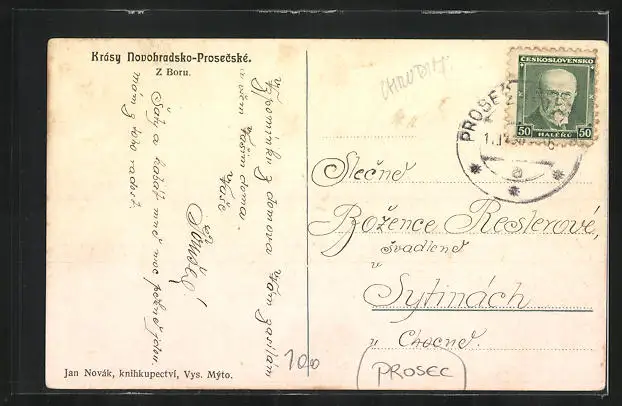 Krásy Novohradsko-Prosečské.
Z Boru.
Vzpomínku z domova Vám zasílám
a všem Vašim doma.
Vaše
Šaty a kabát mně moc pěkně jdou
mám z toho radost.
Jan Novák, knihkupectví, Vys. Mýto.
CHRUDIM
ČESKOSLOVENSKO
50 HALÉŘŮ 50
PROSEČ
a
Slečně
Boženě Reslerové,
švadleně
v
Sytinách
u Chocně.
100
PROSEC